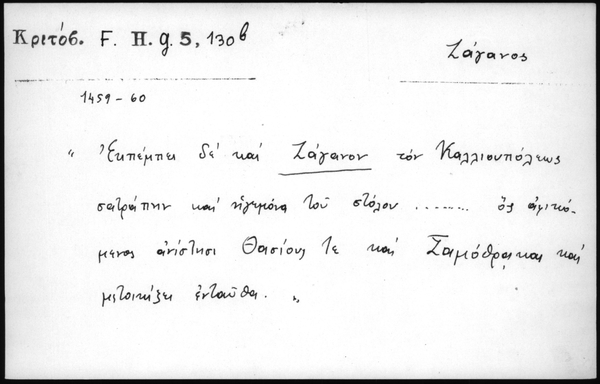 Κριτόβ. F. H. g. 5, 130 b
Ζάγανος
1459-60
" Ἐκπέμπει δέ καί Ζάγανον τόν Καλλιουπόλεως
σατράπην καί ἡγεμόνα τοῦ στόλου ........ ὅς ἀφικό-
μενος ἀνίστησι Θασίους τε καί Σαμόθρᾳκας καί
μετοικίζει ἐνταῦθα. "